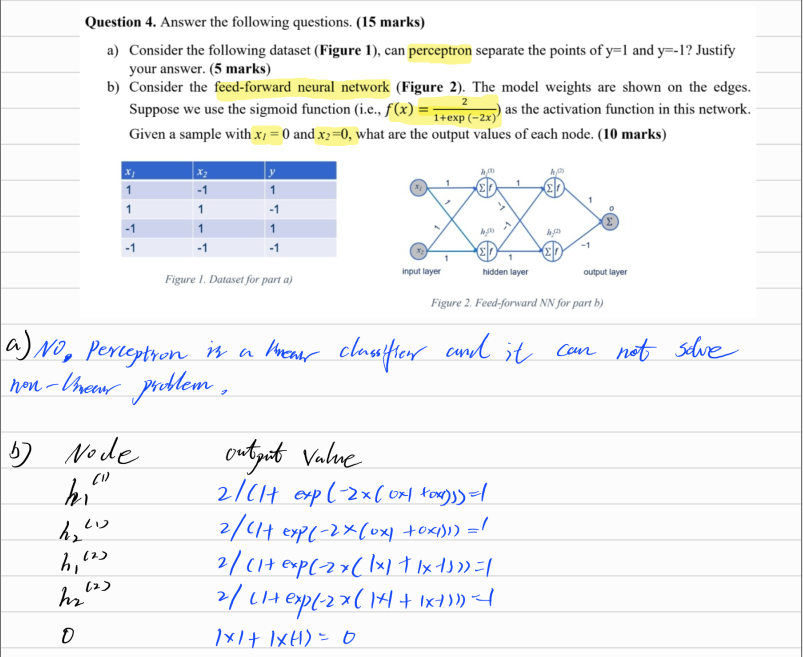 Question 4. Answer the following questions. (15 marks)
a) Consider the following dataset (Figure 1), can perceptron separate the points of y=1 and y=-1? Justify
your answer. (5 marks)
b) Consider the feed-forward neural network (Figure 2). The model weights are shown on the edges.
Suppose we use the sigmoid function (i.e., f(x) = 2/(1+exp (−2x))) as the activation function in this network.
Given a sample with x₁ = 0 and x₂=0, what are the output values of each node. (10 marks)
x₁ x₂ y
1 -1 1
1 1 -1
-1 1 1
-1 -1 -1
Figure 1. Dataset for part a)
h₁⁽¹⁾ h₁⁽²⁾
x₁ 1 Σ f 1 Σ f
1 -1 1 o
Σ
1 -1
h₂⁽¹⁾ h₂⁽²⁾
x₂ 1 Σ f 1 Σ f -1
input layer hidden layer output layer
Figure 2. Feed-forward NN for part b)
a) No, Perceptron is a linear classifier and it can not solve
non-linear problem.
b) Node output value
h₁⁽¹⁾ 2/(1+ exp(-2×(0×1 +0×1)))=1
h₂⁽¹⁾ 2/(1+ exp(-2×(0×1 +0×1)))=1
h₁⁽²⁾ 2/(1+exp(-2×(1×1 + 1×-1)))=1
h₂⁽²⁾ 2/(1+exp(-2×(1×1 + 1×-1)))=1
O 1×1+1×(-1)=0